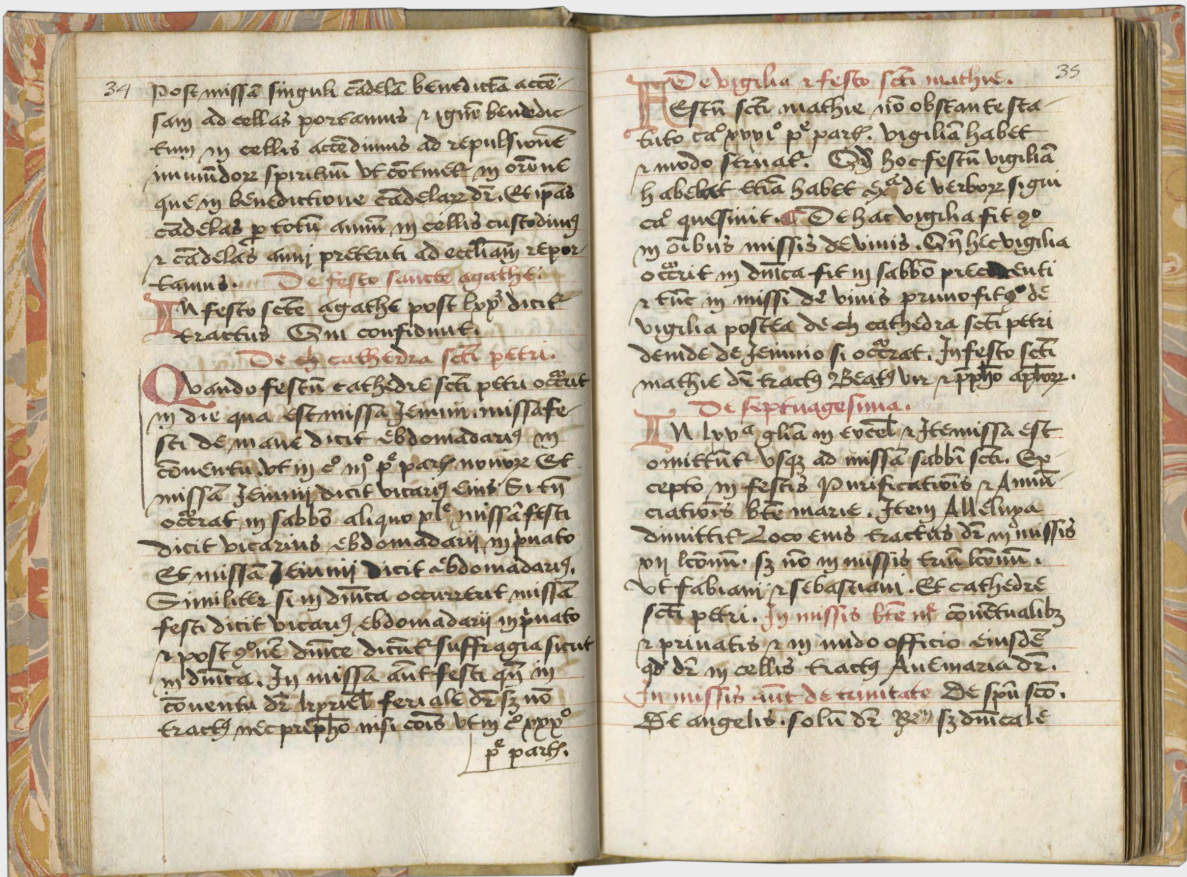 34
Post missā singuli cādelā benedictā accē-
sam ad cellas portamus ⁊ ignē benedic-
tum in cellis accēdimus ad repulsionē
inmūdorꝝ spirituū vt cōtinetᷣ in orōne
que in benedictione cādelarꝝ dr̄. Et ip̄as
cādelas p totū annū in cellis custodimꝰ
⁊ cādelas anni preteriti ad eccl̄iam repor-
tamus. De festo sancte agathe.
In festo scte agathe post lxxᵃ dicitᷣ
tractus Qui confidunt.
De ch cathedra scti petri.
Quando festū cathedre scti petri occ̄rit
in die qua est missa Jeiunii. missa fe-
sti de mane dicit ebdomadariꝰ in
cōventu. vt in cº mº pᵉ parti nonorꝝ Et
missam Jeiunij dicit vicariꝰ eius Si tn̄
occ̄rat in sabbō aliquo xlᵉ missā festi
dicit vicarius ebdomadarij in p̄uato
Et missā Jeiunij dicit ebdomadariꝰ.
Similiter si in dn̄ica occurrerit missā
festi dicit vicariꝰ ebdomadarij in p̄uato
⁊ post ꝯ̄nē dn̄ice dicūtᷣ suffragia sicut
in dn̄ica. In missa aūt festi qn̄ in
cōventu dr̄ kyriel̄ feriale dr̄ sꝫ nō
tractꝰ nec prephº nisi cōis vt in cº xxxº
pᵉ parti.
35
De vigilia ⁊ festo scti mathie.
Festū scti mathie nō obstante sta-
tuto caº xxviº pᵉ parti. vigiliā habet
⁊ modo seruatᷣ. Qd̄ hoc festū vigiliā
habebat etiā habetᷣ exᵃ de verborꝝ sigui
caº quesiuit. De hac vigilia fit ꝯº
in oībus missis de viuis. Qn̄ hec vigilia
occ̄rit in dn̄ica fit in sabbō precedenti
⁊ tūc in missi de viuis primo fit ꝯº de
vigilia postea de ch cathedra scti petri
deinde de Jeiunio si occ̄rat. In festo scti
mathie dr̄ tractꝰ Beatꝰ vir ⁊ p̄phº apl̄orꝝ.
De septuagesima.
In lxxᵃ gl̄ia in excel̄ ⁊ Ite missa est
omittūtᷣ vsqꝫ ad missā sabbi scti. Ex-
cepto in festis Purificatiōis ⁊ Annū-
ciatiōis bte marie. Item Alleluya
dimittitᷣ Loco eius tractus dr̄ in missis
xii lc̄onū. sꝫ nō in missis triū lc̄onū.
vt fabiani ⁊ sebastiani. Et cathedre
scti petri. In missis bte mᵉ cōuētualibꝫ
⁊ priuatis ⁊ in nudo officio eiusdē
qd̄ dr̄ in cellis tractꝰ Aue maria dr̄.
In missis aūt de trinitate De spū scō.
Et angelis. solū dr̄ sꝫ dn̄icale